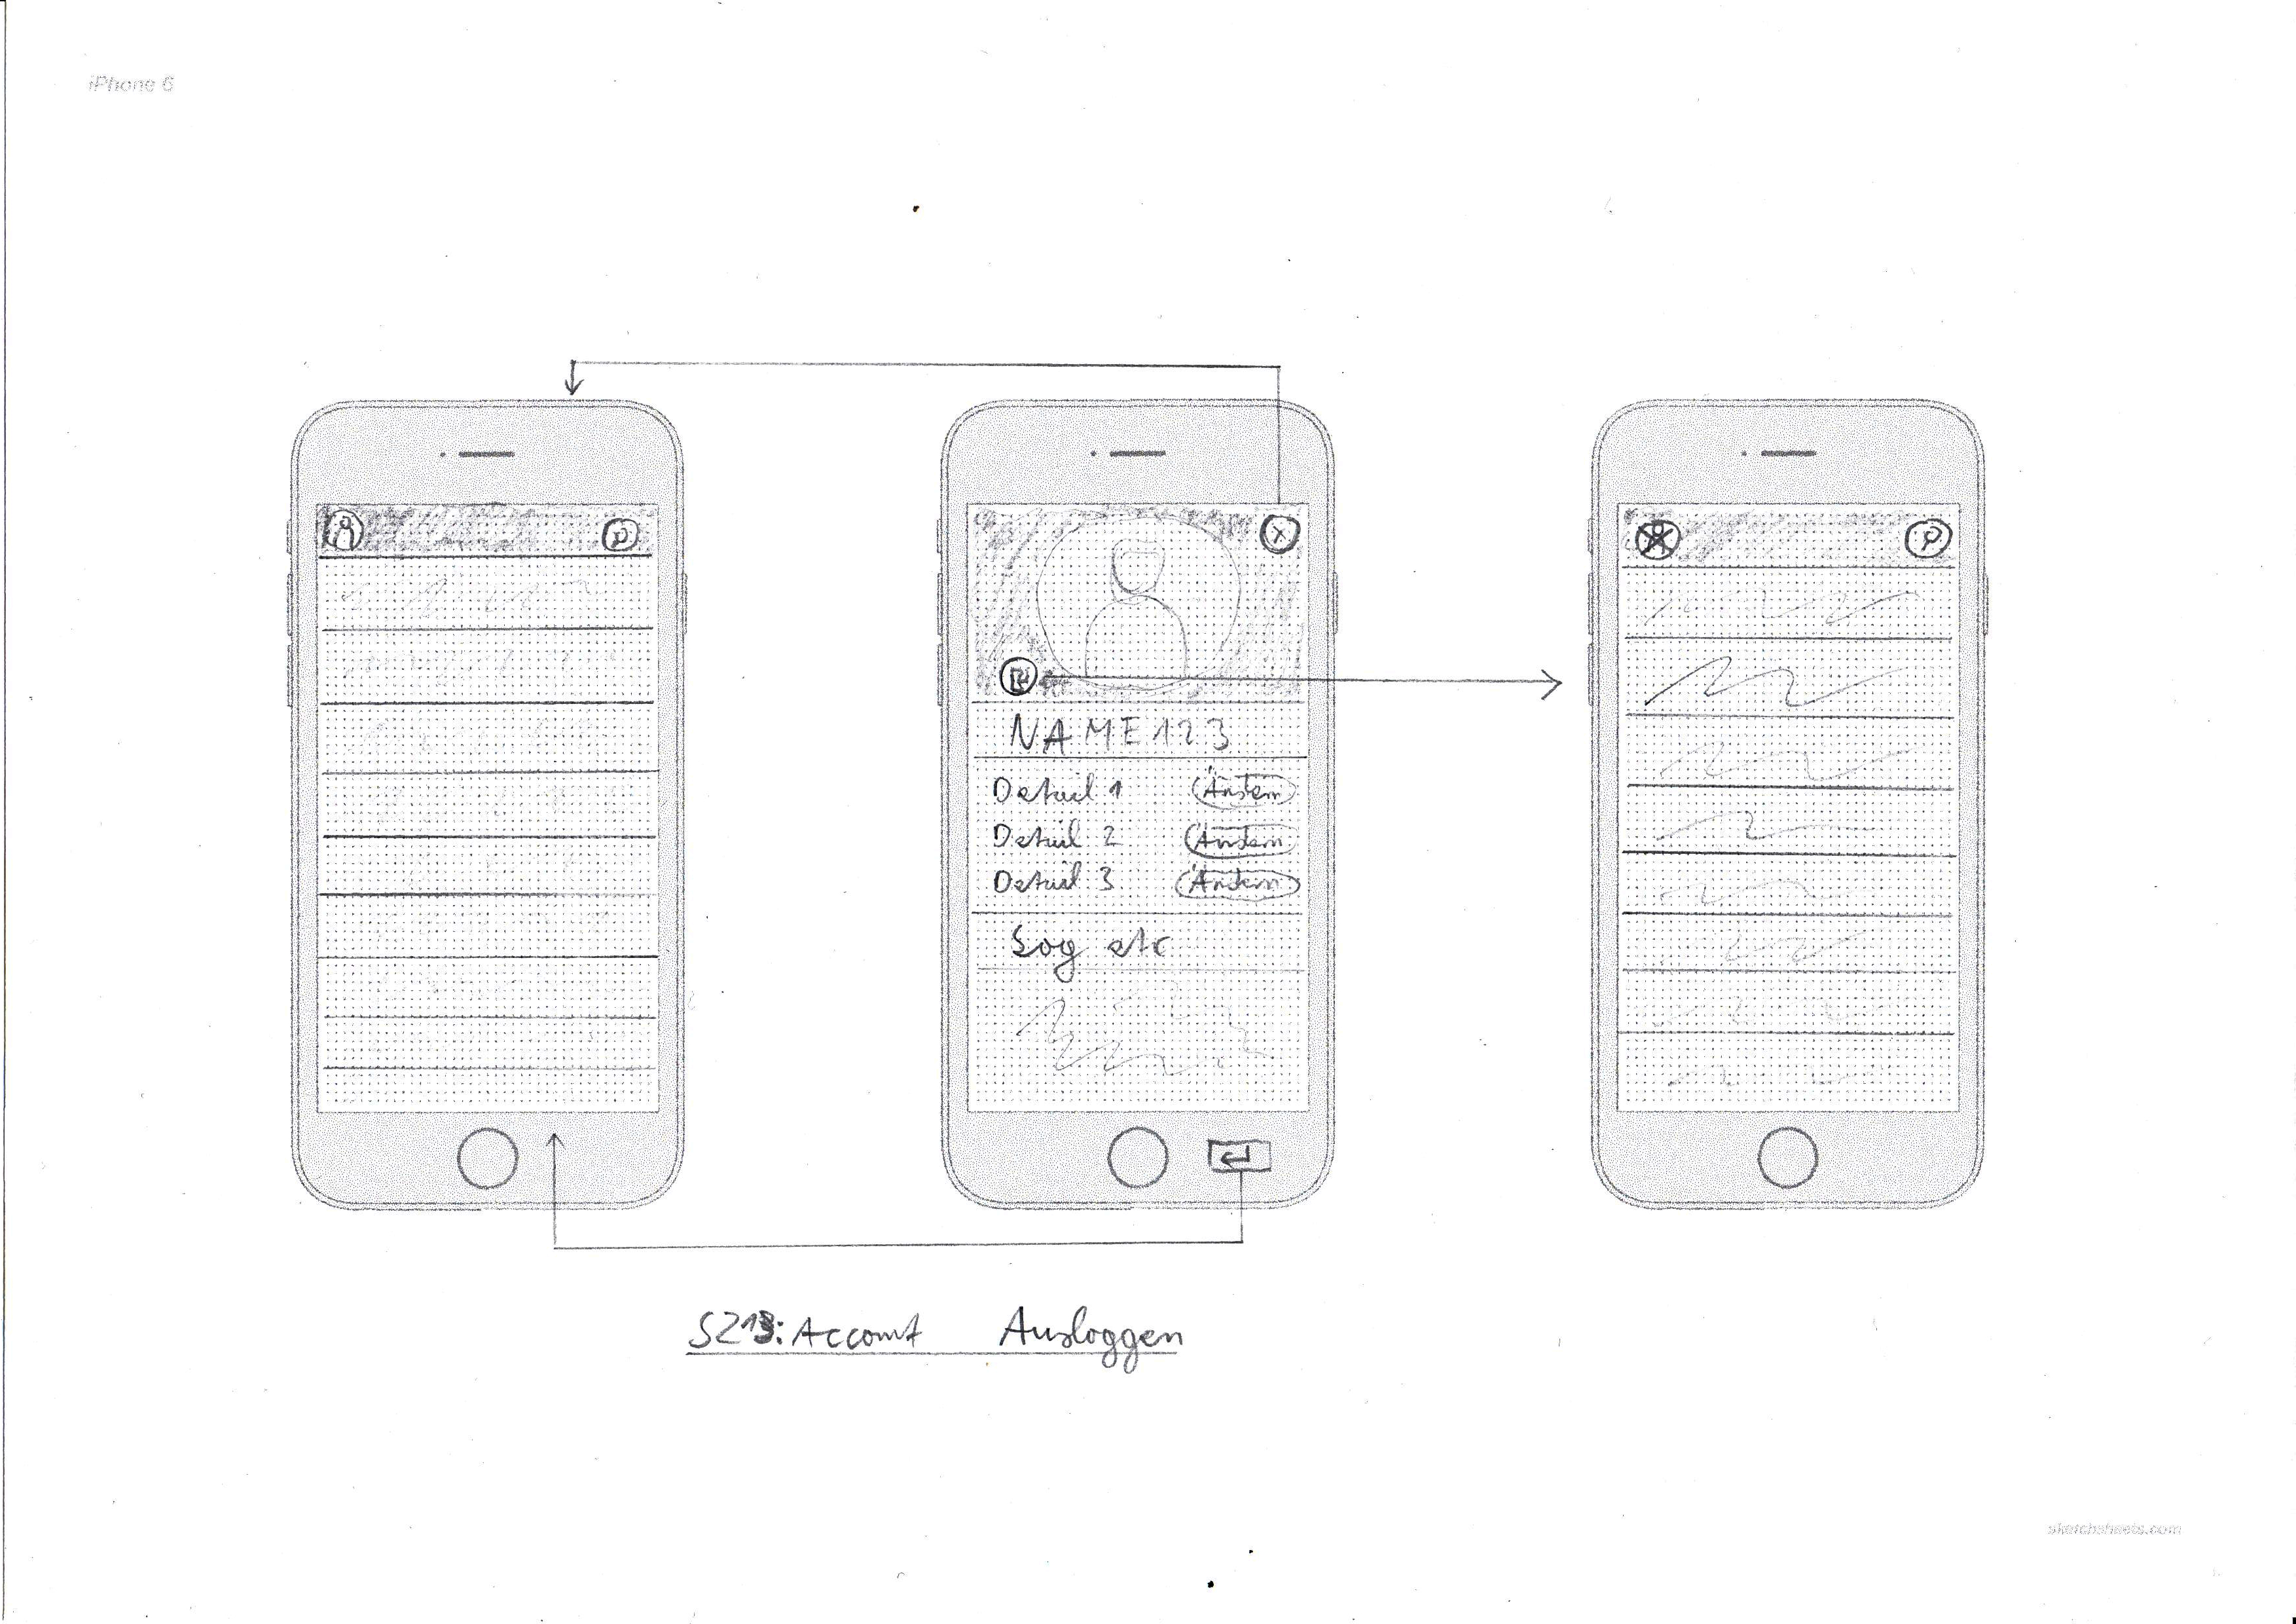 iPhone 6
NAME123
Detail 1 Ändern
Detail 2 Ändern
Detail 3 Ändern
Log etc
Account Ausloggen
sketchsheets.com